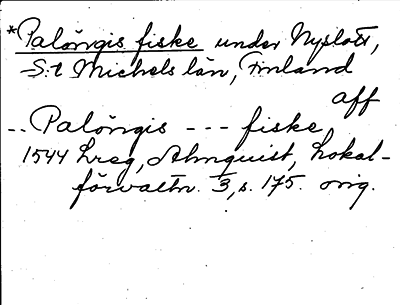 *Palöngis fiske under Nyslott,
S:t Michels län, Finland
aff
.. Palöngis --- fiske
1544 hreg, Almquist, Lokal-
förvaltn. 3, s. 175. orig.